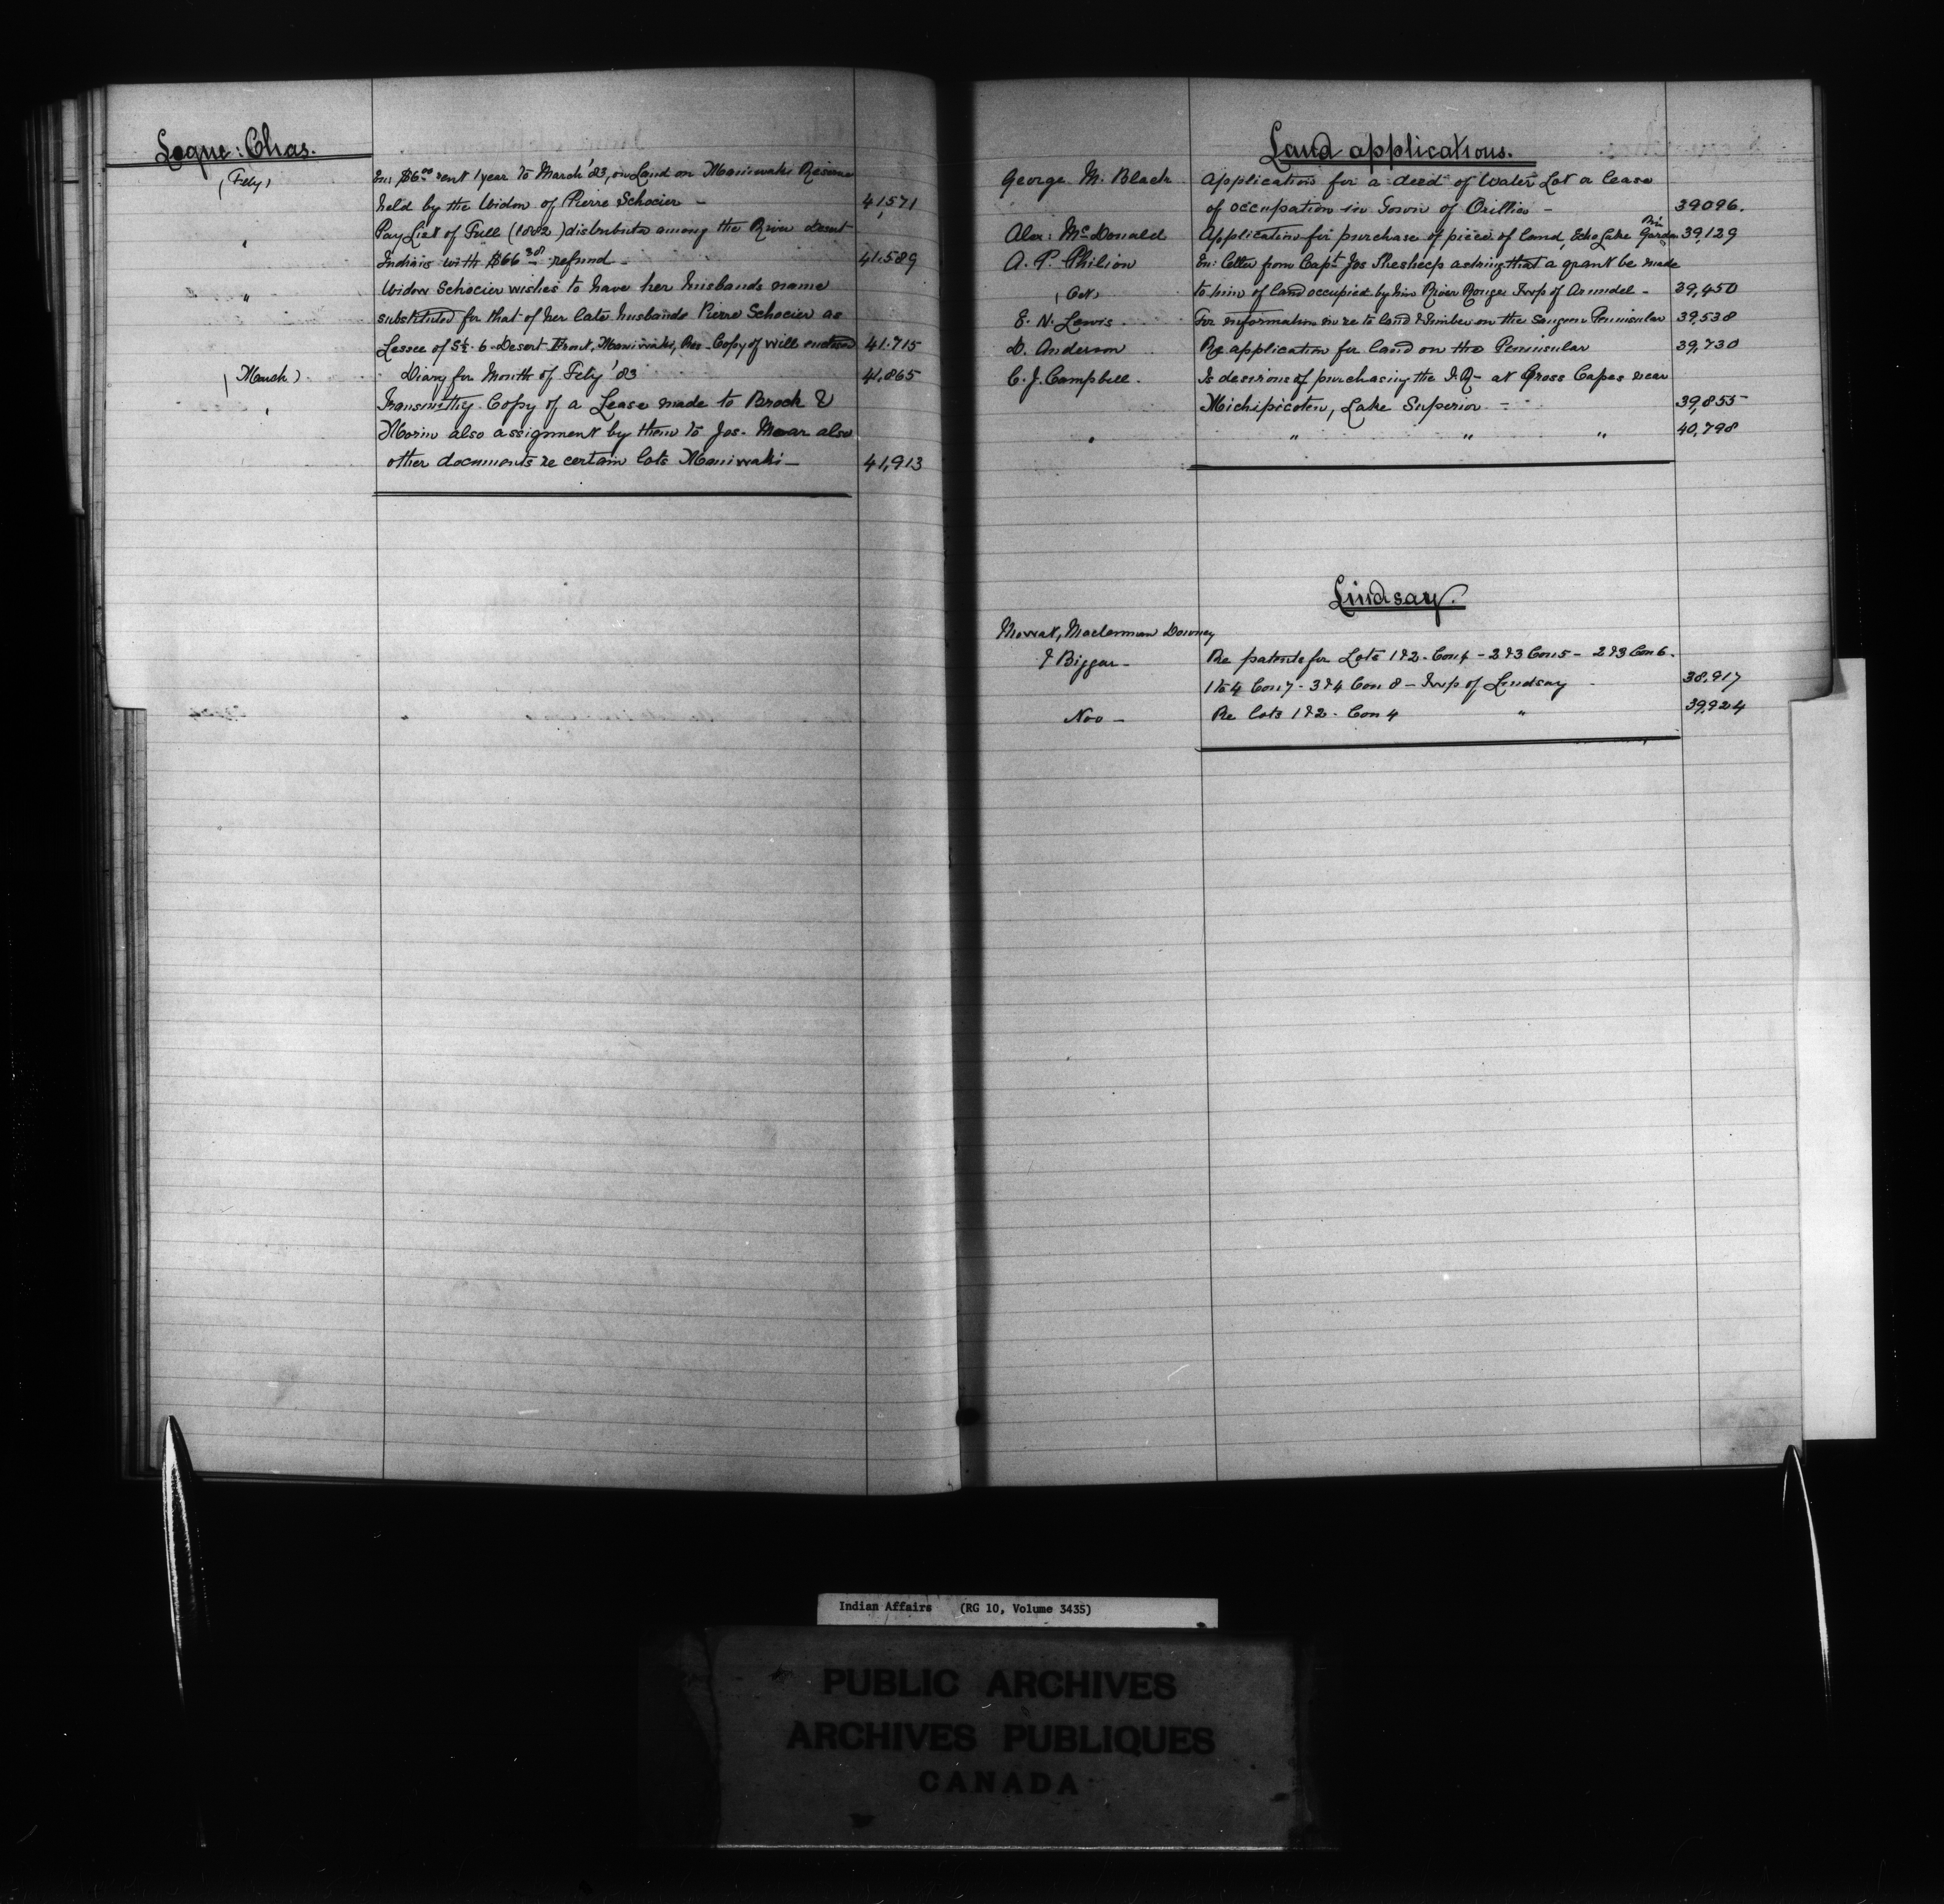 Logue: Chas.
(Feby) En: $6.00 rent 1 year to March '83, on Land on Maniwaki Reserve
held by the Widow of Pierre Schocier - 41,571
" Pay List of Full (1882) distributed among the River desert
Indians with $66.38 refund - 41.589
" Widow Schocier wishes to have her husbands name
substituted for that of her late husbands Pierre Schocier as
Lessee of S½ 6 Desert Front, Maniwaki, Res - Copy of will enclosed 41.715
(March) Diary for Month of Feby '83 41,865
" Transmittg Copy of a Lease made to Brock &
Morin also assignment by them to Jos. Moar also
other documents re certain lots Maniwaki - 41,913
Land applications.
George M. Black Application for a deed of Water Lot a lease
of occupation in Town of Orillia - 39096.
Alex: McDonald Application for purchase of piece of land, Echo Lake Garden Riv 39,129
A. P. Philion En: letter from Capt Jos Shesheep asking that a grant be made
(Oct) to him of land occupied by him River Rouge Twp of Arundel - 39,450
E. N. Lewis For information in re to land & timber on the Saugeen Peninsular 39,538
D. Anderson Re application for land on the Peninsular 39,730
C. J. Campbell. Is desirous of purchasing the I.R- at Gross Capes near
Michipicoten, Lake Superior - 39,855
" " " " 40,798
Lindsay.
Mowat, Maclennan Downey
& Biggar - Re patents for Lots 1 & 2 - Con 4 - 2 & 3 Con 5 - 2 & 3 Con 6.
1 to 4 Con 7 - 3 & 4 Con 8 - Twp of Lindsay 38,917
Nov - Re lots 1 & 2 - Con 4 " 39,924
Indian Affairs (RG 10, Volume 3435)
PUBLIC ARCHIVES
ARCHIVES PUBLIQUES
CANADA